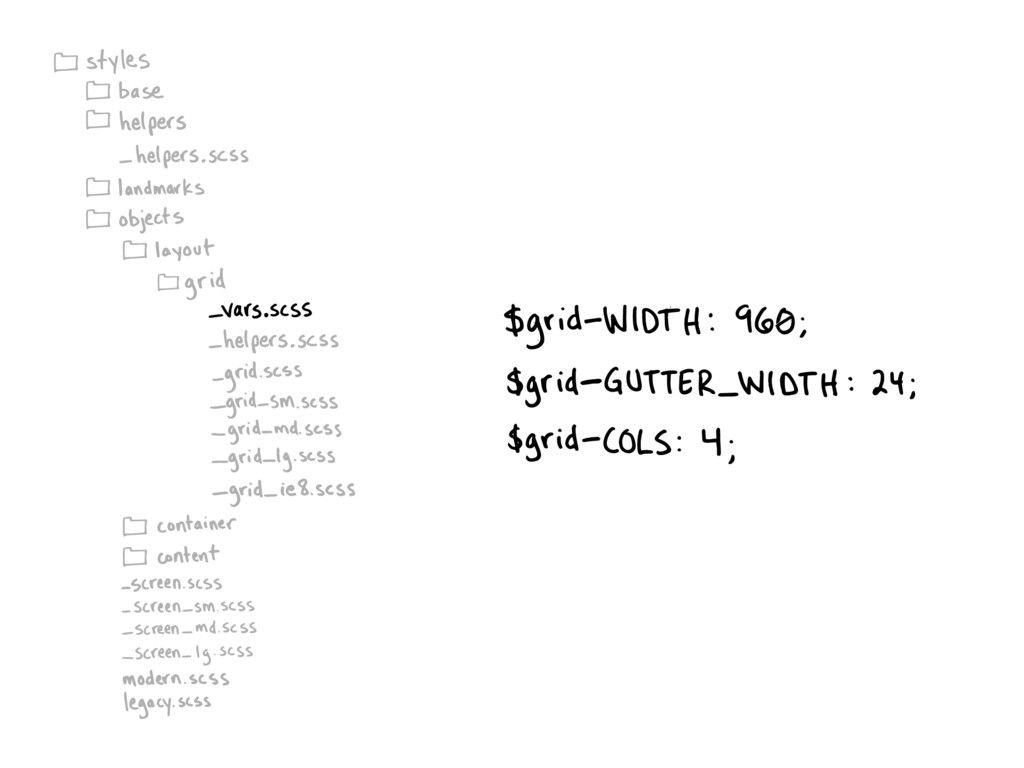 styles
base
helpers
_helpers.scss
landmarks
objects
layout
grid
_vars.scss
_helpers.scss
_grid.scss
_grid_sm.scss
_grid_md.scss
_grid_lg.scss
_grid_ie8.scss
container
content
_screen.scss
_screen_sm.scss
_screen_md.scss
_screen_lg.scss
modern.scss
legacy.scss
$grid-WIDTH: 960;
$grid-GUTTER_WIDTH: 24;
$grid-COLS: 4;